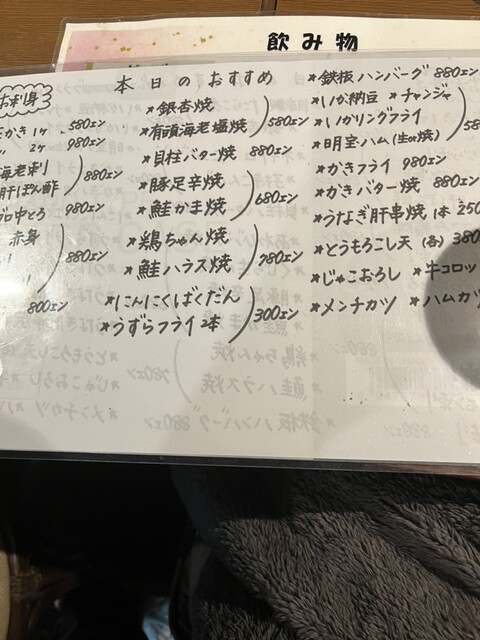 飲み物
本日のおすすめ
お刺身
生かき 1ケ 580エン
〃 2ケ 980エン
海老刺
肝ぽん酢 880エン
中とろ 980エン
赤身
880エン
800エン
*銀杏焼
*有頭海老塩焼 580エン
*貝柱バター焼 880エン
*豚足辛焼
*鮭かま焼 680エン
*鶏ちゃん焼
*鮭ハラス焼 780エン
*にんにくばくだん
*うずらフライ2本 300エン
*鉄板ハンバーグ 880エン
*いか納豆 *チャンジャ
*いかリングフライ
*明宝ハム(生or焼)
*かきフライ 980エン
*かきバター焼 880エン
*うなぎ肝串焼 1本 250
*とうもろこし天(各) 380
*じゃこおろし *牛コロッ
*メンチカツ *ハムカツ